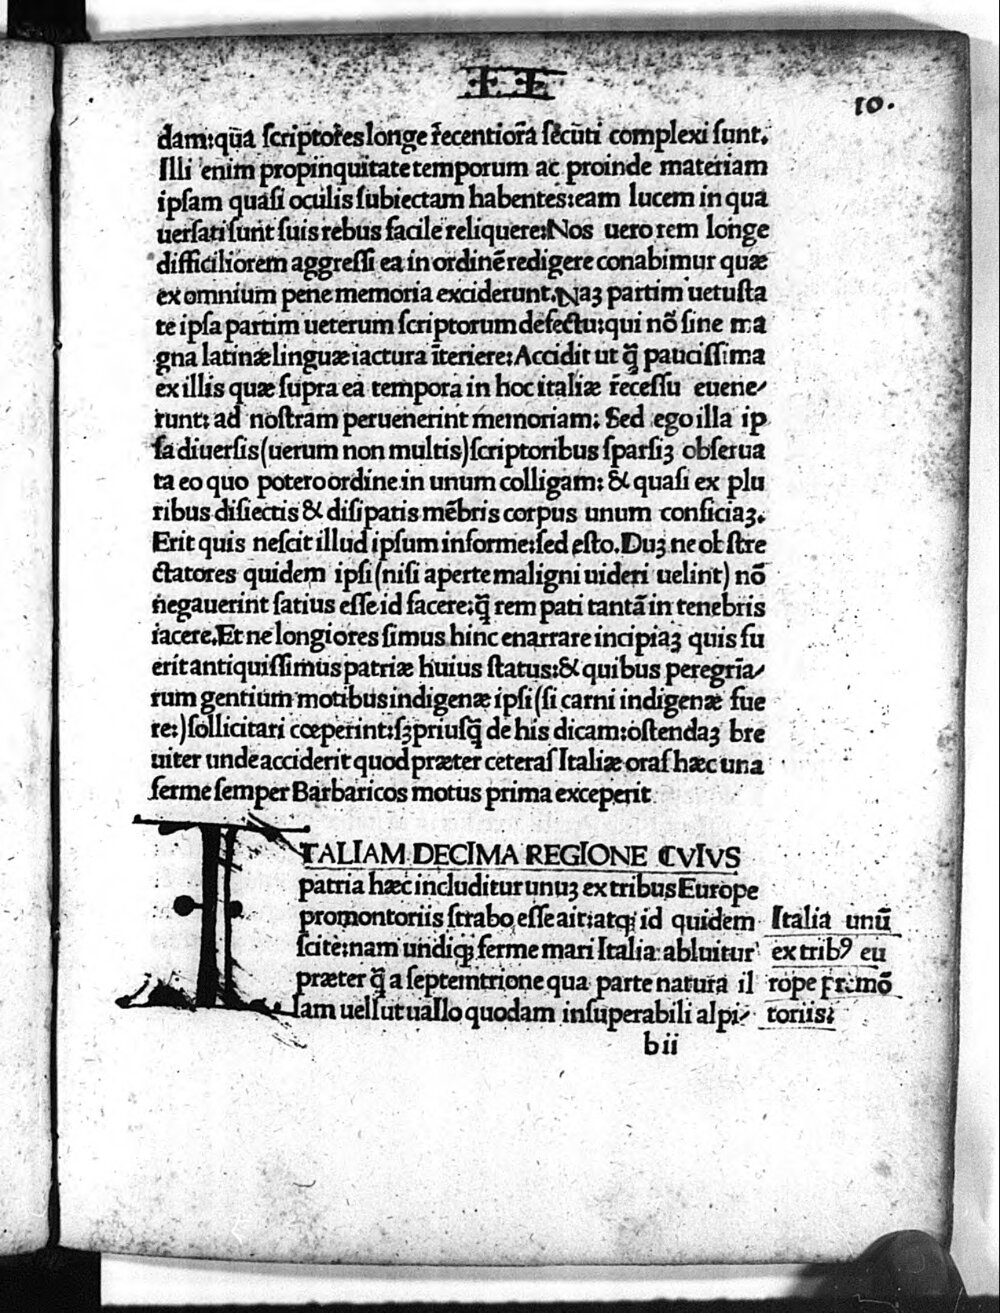 10.
dam:qua᷈ ſcriptores longe recentiora ſecuti complexi ſunt.
Illi enim propinquitate temporum ac proinde materiam
ipſam quaſi oculis ſubiectam habentes:eam lucem in qua
uerſati ſunt ſuis rebus facile reliquere:Nos uero rem longe
difficiliorem aggreſſi ea in ordinē redigere conabimur quæ
ex omnium pene memoria exciderunt.Naꝫ partim uetuſta
te ipſa partim ueterum ſcriptorum defectu:qui nō ſine ma
gna latinæ linguæ iactura īteriere:Accidit ut q̄ pauciſſima
ex illis quæ ſupra ea tempora in hoc italiæ receſſu euene-
runt: ad noſtram peruenerint memoriam: Sed ego illa ip
ſa diuerſis(uerum non multis)ſcriptoribus ſparſiꝫ obſerua
ta eo quo potero ordine in unum colligam: & quaſi ex plu
ribus diſiectis & diſipatis mēbris corpus unum conficiaꝫ.
Erit quis neſcit illud ipſum informe:ſed eſto.Duꝫ ne obſtre
ctatores quidem ipſi(niſi aperte maligni uideri uelint) nō
negauerint ſatius eſſe id facere:q̄ rem pati tantā in tenebris
iacere.Et ne longiores ſimus hinc enarrare incipiaꝫ quis fu
erit antiquiſſimus patriæ huius ſtatus:& quibus peregrīa-
rum gentium motibus indigenæ ipſi(ſi carni indigenæ fue
re:)ſollicitari cœperint:ſꝫ priuſq̄ de his dicam:oſtendaꝫ bre
uiter unde acciderit quod præter ceteraſ Italiæ oraſ hæc una
ferme ſemper Barbaricos motus prima exceperit
ITALIAM DECIMA REGIONE CVIVS
patria hæc includitur unuꝫ ex tribus Europe
promontoriis ſtrabo eſſe ait:atqꝫ id quidem
ſcite:nam undiqꝫ ferme mari Italia abluitur
præter q̄ a ſeptemtrione qua parte natura il
lam uellut uallo quodam inſuperabili alpi-
Italia unū
ex tribꝰ eu
rope promō
toriis:
bii